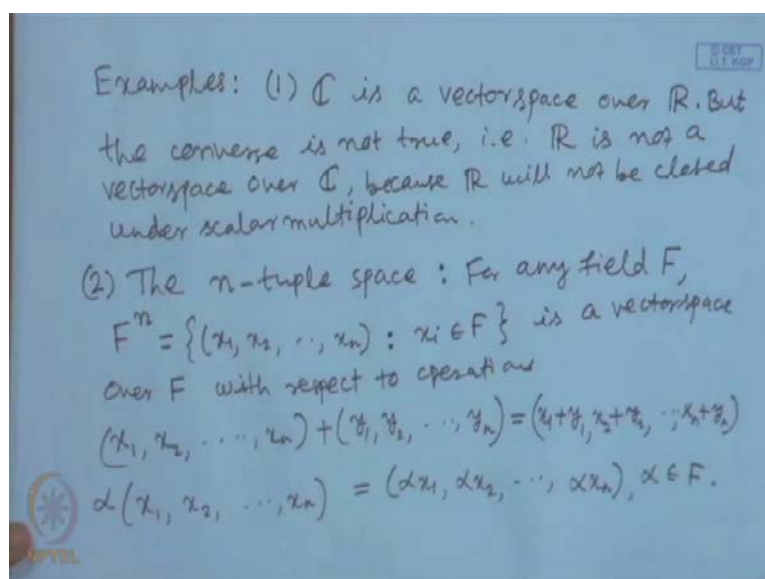 © CET
I.I.T. KGP
Examples: (1) ℂ is a vectorspace over ℝ. But
the converse is not true, i.e. ℝ is not a
vectorspace over ℂ, because ℝ will not be closed
under scalar multiplication.
(2) The n-tuple space : For any field F,
Fⁿ = {(x₁, x₂, .., xₙ) : xᵢ ∈ F} is a vectorspace
over F with respect to operations
(x₁, x₂, ...., xₙ) + (y₁, y₂, .., yₙ) = (x₁+y₁, x₂+y₂, .., xₙ+yₙ)
α(x₁, x₂, ..., xₙ) = (αx₁, αx₂, ..., αxₙ), α ∈ F.
NPTEL